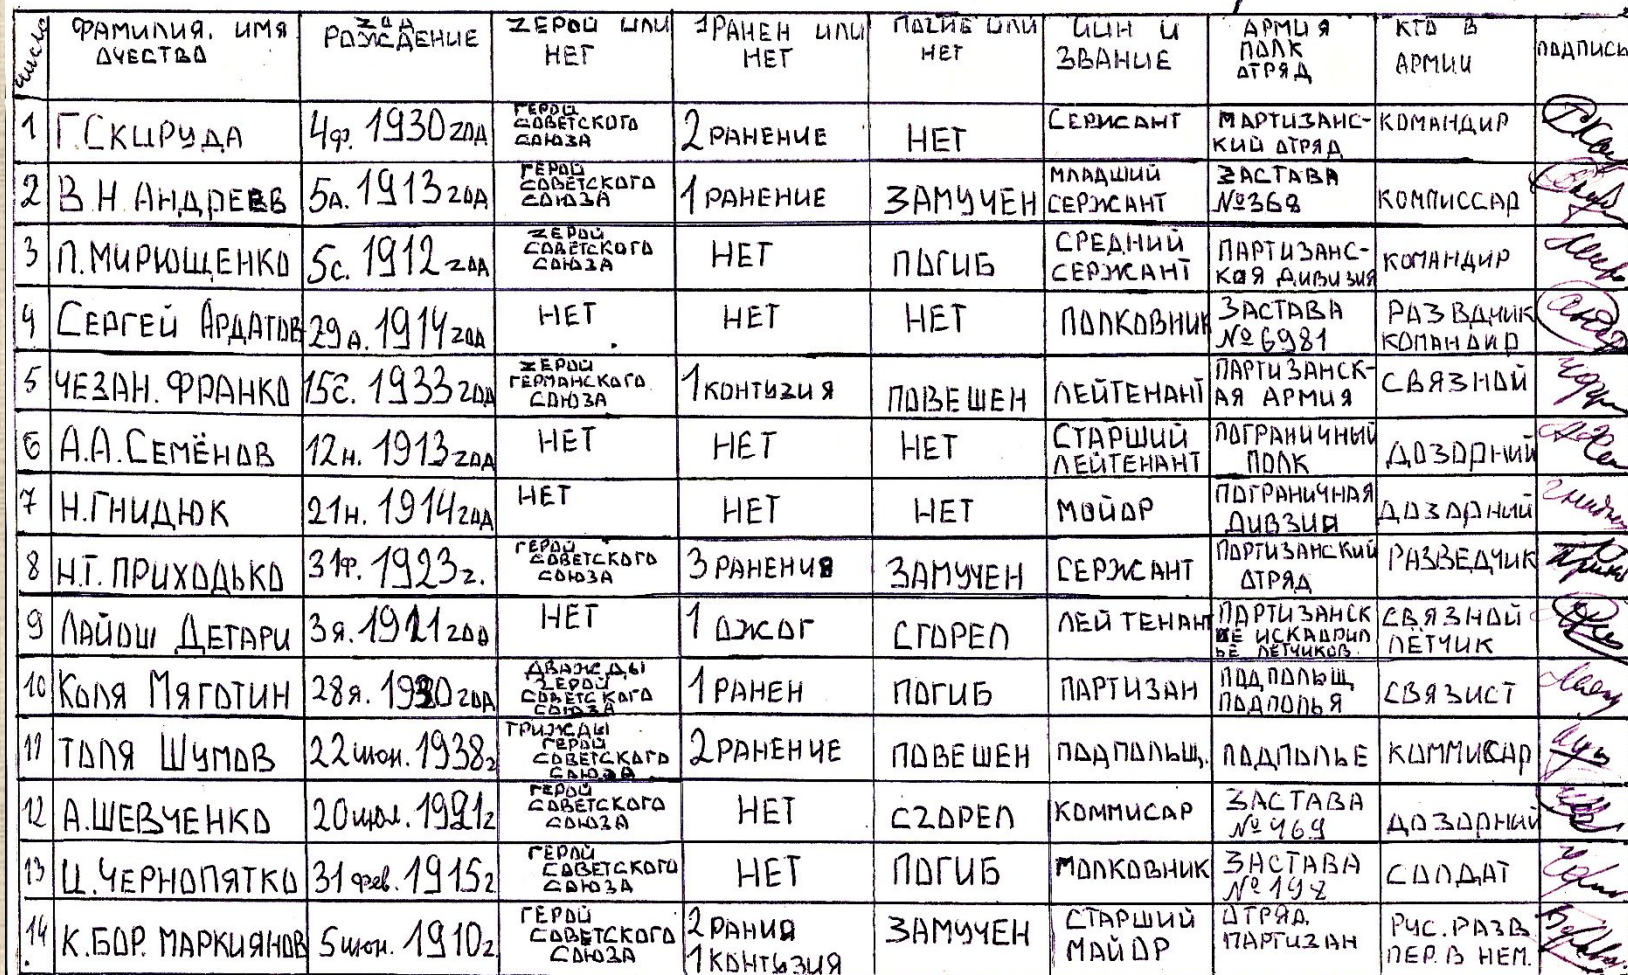 число ФАМИЛИЯ. ИМЯ ОЧЕСТВО ZОД РОЖДЕНИЕ ZЕРОЙ ИЛИ НЕТ 1РАНЕН ИЛИ НЕТ ПОГИБ ИЛИ НЕТ ЧИН И ЗВАНИЕ АРМИЯ ПОЛК ОТРЯД КТО В АРМИИ ПОДПИСЬ
1 Г.СКИРУДА 4ф. 1930 год ГЕРОЙ СОВЕТСКОГО СОЮЗА 2 РАНЕНИЕ НЕТ СЕРИСАНТ МАРТИЗАНС-КИЙ ОТРЯД КОМАНДИР
2 В.Н. АНДРЕЕВ 5А. 1913 год ГЕРОЙ СОВЕТСКОГО СОЮЗА 1 РАНЕНИЕ ЗАМУЧЕН МЛАДШИЙ СЕРЖАНТ ЗАСТАВА №368 КОМПИССАР
3 П.МИРЮЩЕНКО 5с. 1912 год ZЕРОЙ СОВЕТСКОГО СОЮЗА НЕТ ПОГИБ СРЕДНИЙ СЕРЖАНТ ПАРТИЗАНС-КОЯ ДИВИЗИЯ КОМАНДИР
4 СЕРГЕЙ АРДАТОВ 29 А. 1914 год НЕТ НЕТ НЕТ ПОЛКОВНИК ЗАСТАВА №6981 РАЗВДЧИК КОМАНДИР
5 ЧЕЗАН. ФРАНКО 15с. 1933 год ZЕРОЙ ГЕРМАНСКОГО СОЮЗА 1 КОНТУЗИЯ ПОВЕШЕН ЛЕЙТЕНАНТ ПАРТИЗАНСК-АЯ АРМИЯ СВЯЗНОЙ
6 А.А. СЕМЁНОВ 12н. 1913 год НЕТ НЕТ НЕТ СТАРШИЙ ЛЕЙТЕНАНТ ПОГРАНИЧНЫЙ ПОЛК ДОЗОРНИЙ
7 Н.ГНИДЮК 21н. 1914 год НЕТ НЕТ НЕТ МОЙОР ПОГРАНИЧНАЯ ДИВЗИЯ ДОЗОРНИЙ
8 Н.Т. ПРИХОДЬКО 31ф. 1923 г. ГЕРОЙ СОВЕТСКОГО СОЮЗА 3 РАНЕНИЯ ЗАМУЧЕН СЕРЖСАНТ ПОРТИЗАНСКИЙ ОТРЯД РАЗВЕДЧИК
9 ЛАЙОШ ДЕТАРИ 3 я. 1921 год НЕТ 1 ОЖОГ СГОРЕЛ ЛЕЙТЕНАНТ ПАРТИЗАНСК ЛЁТЧИКОВ СВЯЗНОЙ ЛЁТЧИК
10 КОЛЯ МЯГОТИН 28 я. 1920 год ДВАЖДЫ ЗЕРОЙ СОВЕТСКОГО СОЮЗА 1 РАНЕН ПОГИБ ПАРТИЗАН ПОДПОЛЬЩ ПОДПОЛЬЯ СВЯЗИСТ
11 ТОЛЯ ШУМОВ 22 июн. 1938г ТРИЖДЫ ГЕРОЙ СОВЕТСКОГО СОЮЗА 2 РАНЕНИЕ ПОВЕШЕН ПОДПОЛЬЩ. ПОДПОЛЬЕ КОММИСАР
12 А.ШЕВЧЕНКО 20 июл. 1921г ГЕРОЙ СОВЕТСКОГО СОЮЗА НЕТ СГОРЕЛ КОММИСАР ЗАСТАВА №469 ДОЗОРНЫЙ
13 Ц.ЧЕРНОПЯТКО 31 фев. 1915г ГЕРОЙ СОВЕТСКОГО СОЮЗА НЕТ ПОГИБ МОЛКОВНИК ЗАСТАВА №198 СОЛДАТ
14 К.БОР. МАРКИЯНОВ 5 июн. 1910г. ГЕРОЙ СОВЕТСКОГО СОЮЗА 2 РАНИЯ 1 КОНТЬЗИЯ ЗАМУЧЕН СТАРШИЙ МАЙОР ОТРЯД ПАРТИЗАН РУС. РАЗВ. ПЕР. В НЕМ.